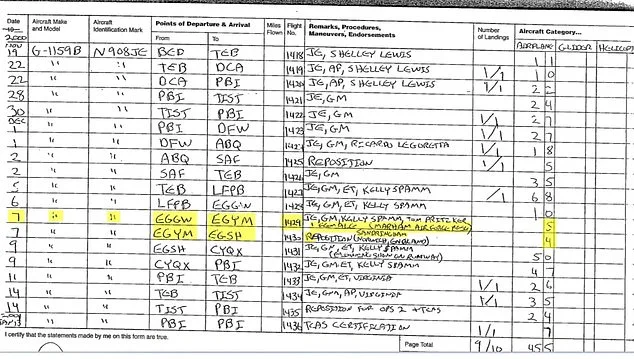 Date
2000
Aircraft Make and Model
Aircraft Identification Mark
Points of Departure & Arrival
From
To
Miles Flown
Flight No.
Remarks, Procedures, Maneuvers, Endorsements
Number of Landings
Aircraft Category...
AIRPLANE GLIDER HELICO
NOV
19 G-1159B N908JE BED TEB 1418 JE, SHELLEY LEWIS 1 1
22 " " TEB DCA 1419 JE, AP, SHELLEY LEWIS 1/1 1 0
22 " " DCA PBI 1420 JE, AP, SHELLEY LEWIS 1/1 2 2
28 " " PBI TIST 1421 JE, GM 2 4
30 " " TIST PBI 1422 JE, GM 1/1 2 7
DEC
1 " " PBI DFW 1423 JE, GM 1/1 2 7
1 " " DFW ABQ 1424 JE, GM, RICARDO LEGORETTA 1/1 1 8
2 " " ABQ SAF 1425 REPOSITION 1/1 5
2 " " SAF TEB 1426 JE, GM 3 5
5 " " TEB LFPB 1427 JE, GM, ET, KELLY SPAMM /1 6 8
6 " " LFPB EGGW 1428 JE, GM, ET, KELLY SPAMM 1 0
7 " " EGGW EGYM 1429 JE, GM, KELLY SPAMM, TOM PRITZKER
1 FEMALE (MARHAM AIR FORCE BASE) 5
SANDRINGHAM
7 " " EGYM EGSH 1430 REPOSITION (NORWICH, ENGLAND) 4
9 " " EGSH CYQX 1431 JE, GM, ET, KELLY SPAMM 5 0
9 " " CYQX PBI 1432 JE, GM, ET, KELLY SPAMM 4 7
11 " " PBI TEB 1433 JE, GM, ET, VIRGINIA 1/1 2 6
14 " " TEB TIST 1434 JE, GM, AP, VIRGINIA 1/1 3 5
14 " " TIST PBI 1435 REPOSITION FOR OPS 2 + TCAS 2 4
2001
JAN 13 " " PBI PBI 1436 TCAS CERTIFICATION 1/1 7
I certify that the statements made by me on this form are true.
Page Total 9/10 45 5